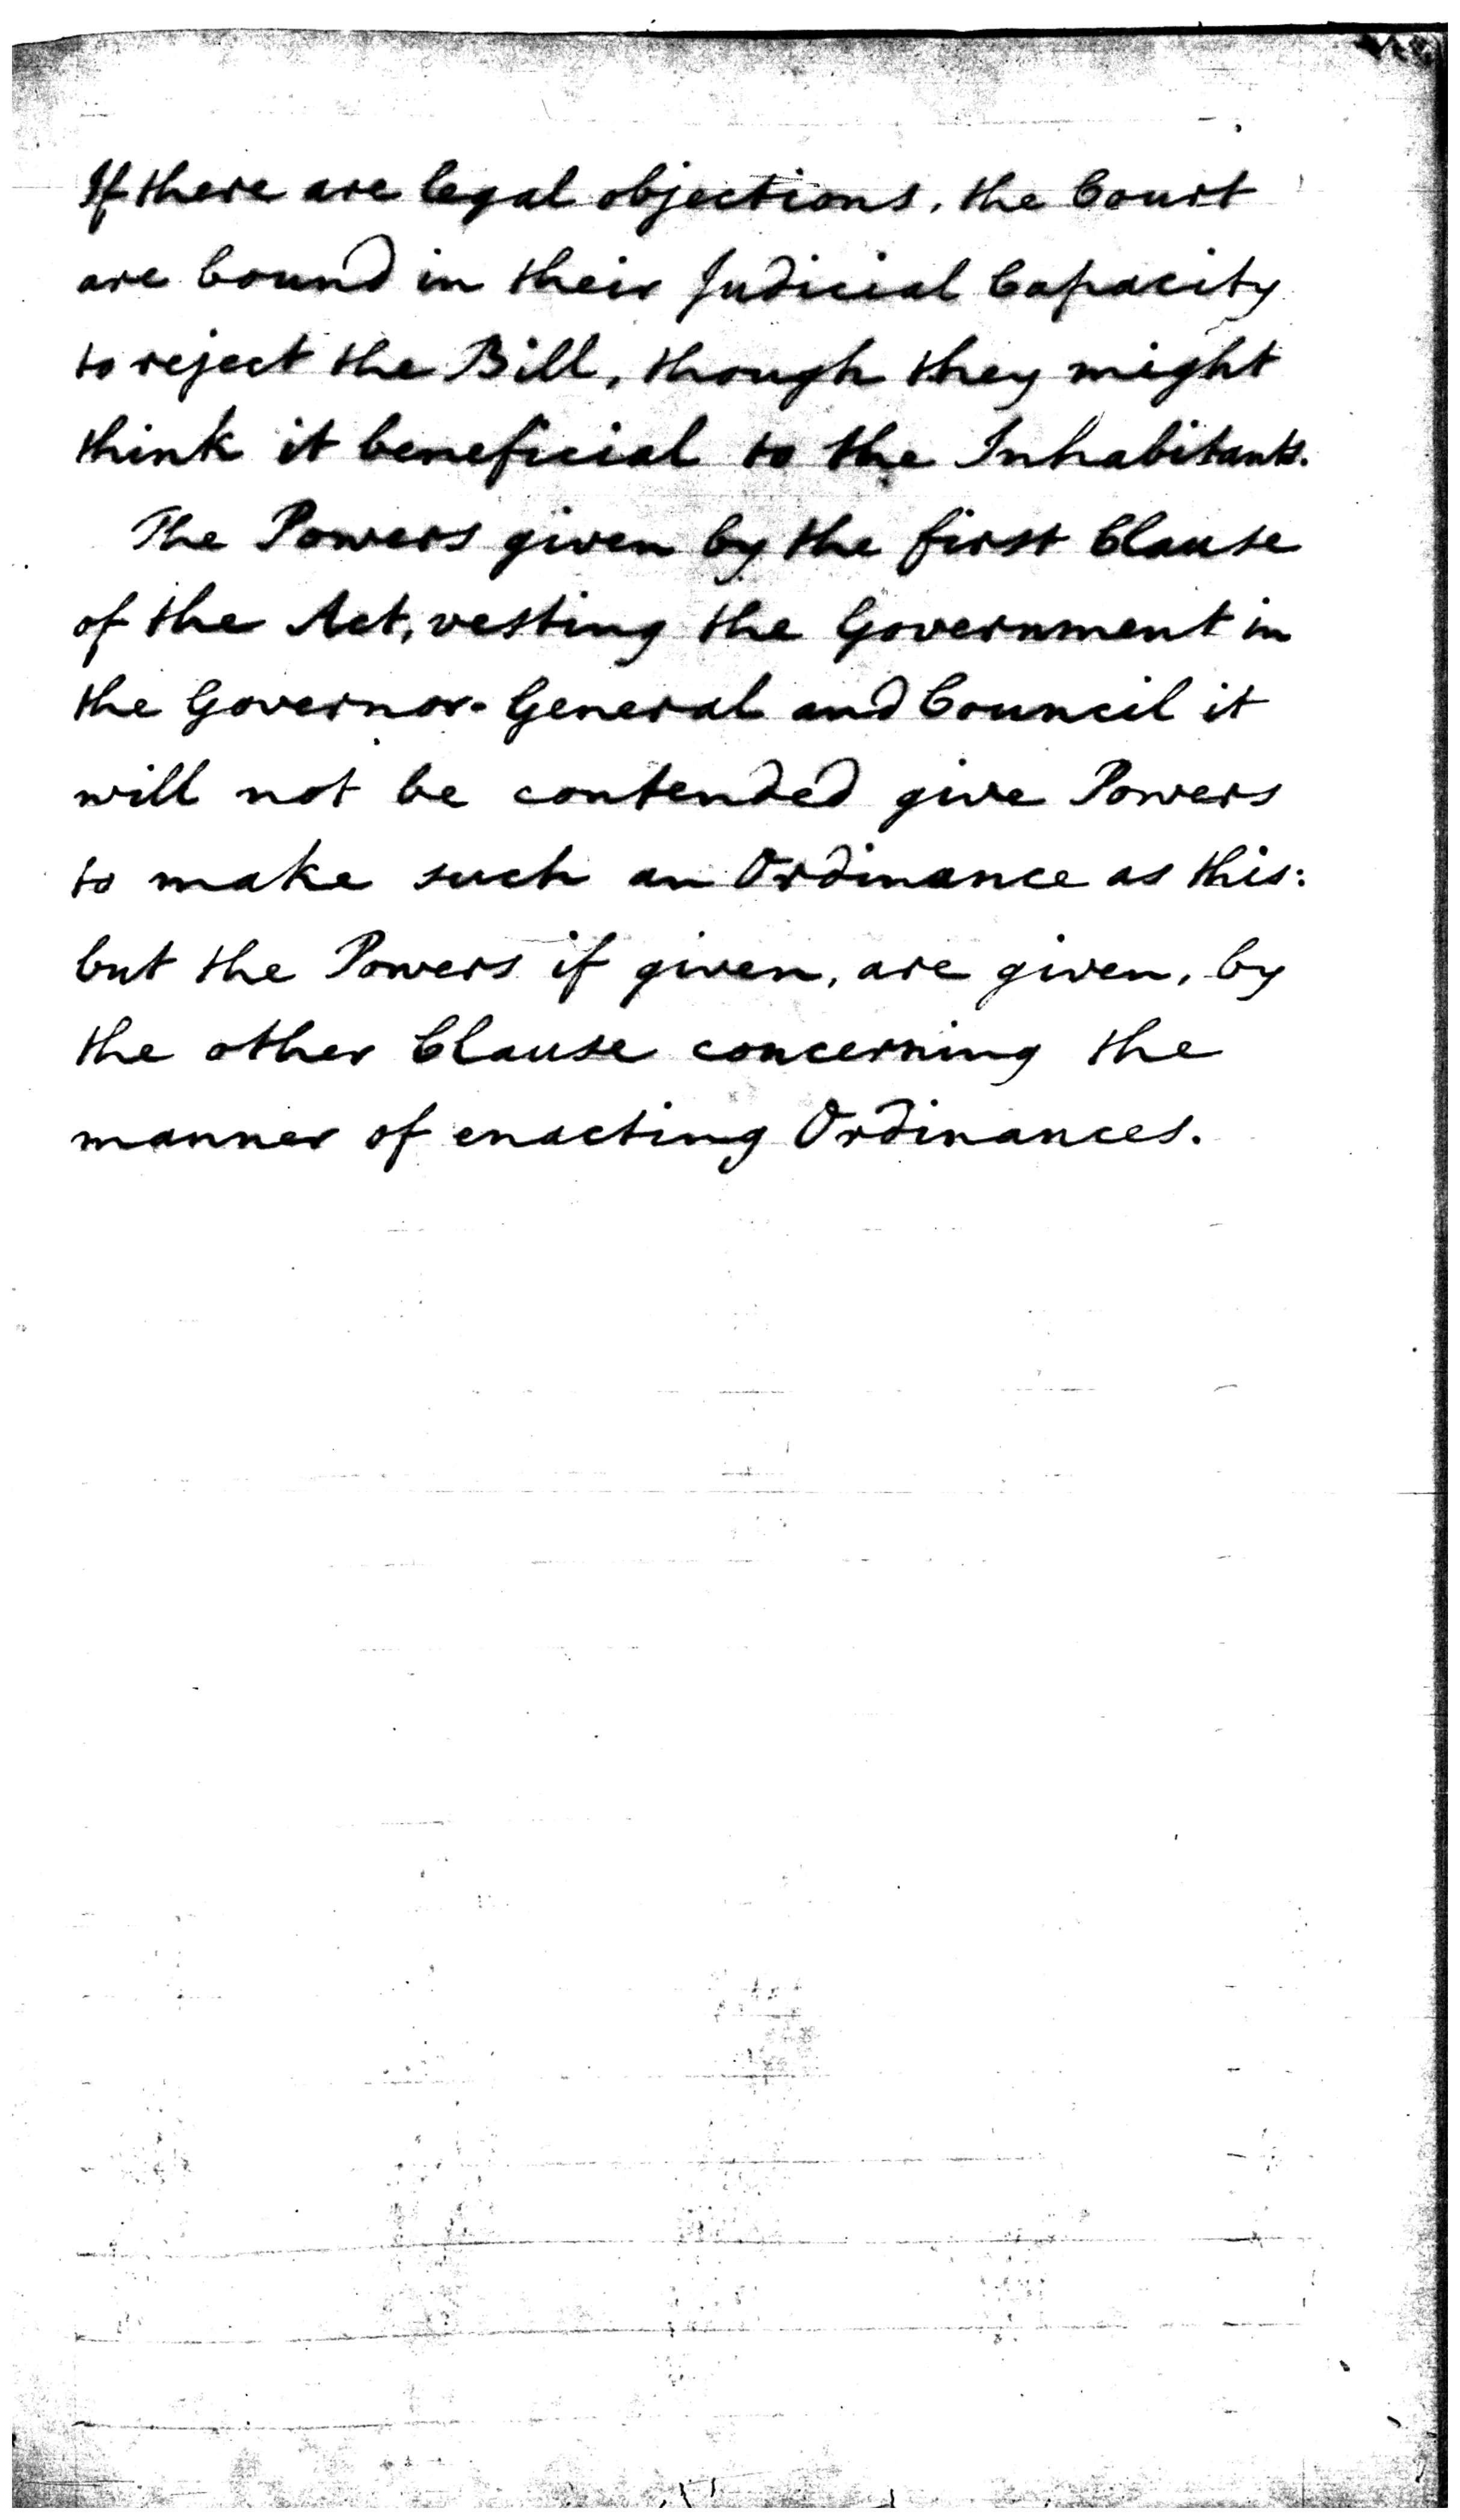 If there are legal objections, the Court
are bound in their Judicial Capacity
to reject the Bill, though they might
think it beneficial to the Inhabitants.
The Powers given by the first Clause
of the Act, vesting the Government in
the Governor-General and Council it
will not be contended give Powers
to make such an Ordinance as this:
but the Powers if given, are given, by
the other Clause concerning the
manner of enacting Ordinances.